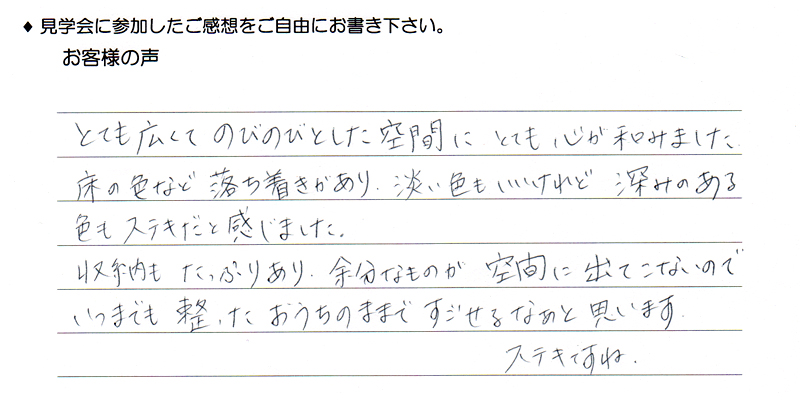 ◆ 見学会に参加したご感想をご自由にお書き下さい。
お客様の声
とても広くて のびのびとした空間に とても 心が 和みました。
床の色など 落ち着きがあり、淡い色も いいけれど 深みのある
色も ステキだと感じました。
収納も たっぷりあり、余分なものが 空間に 出てこないので
いつまでも 整った おうちのままで すごせるなぁと 思います。
ステキですね。